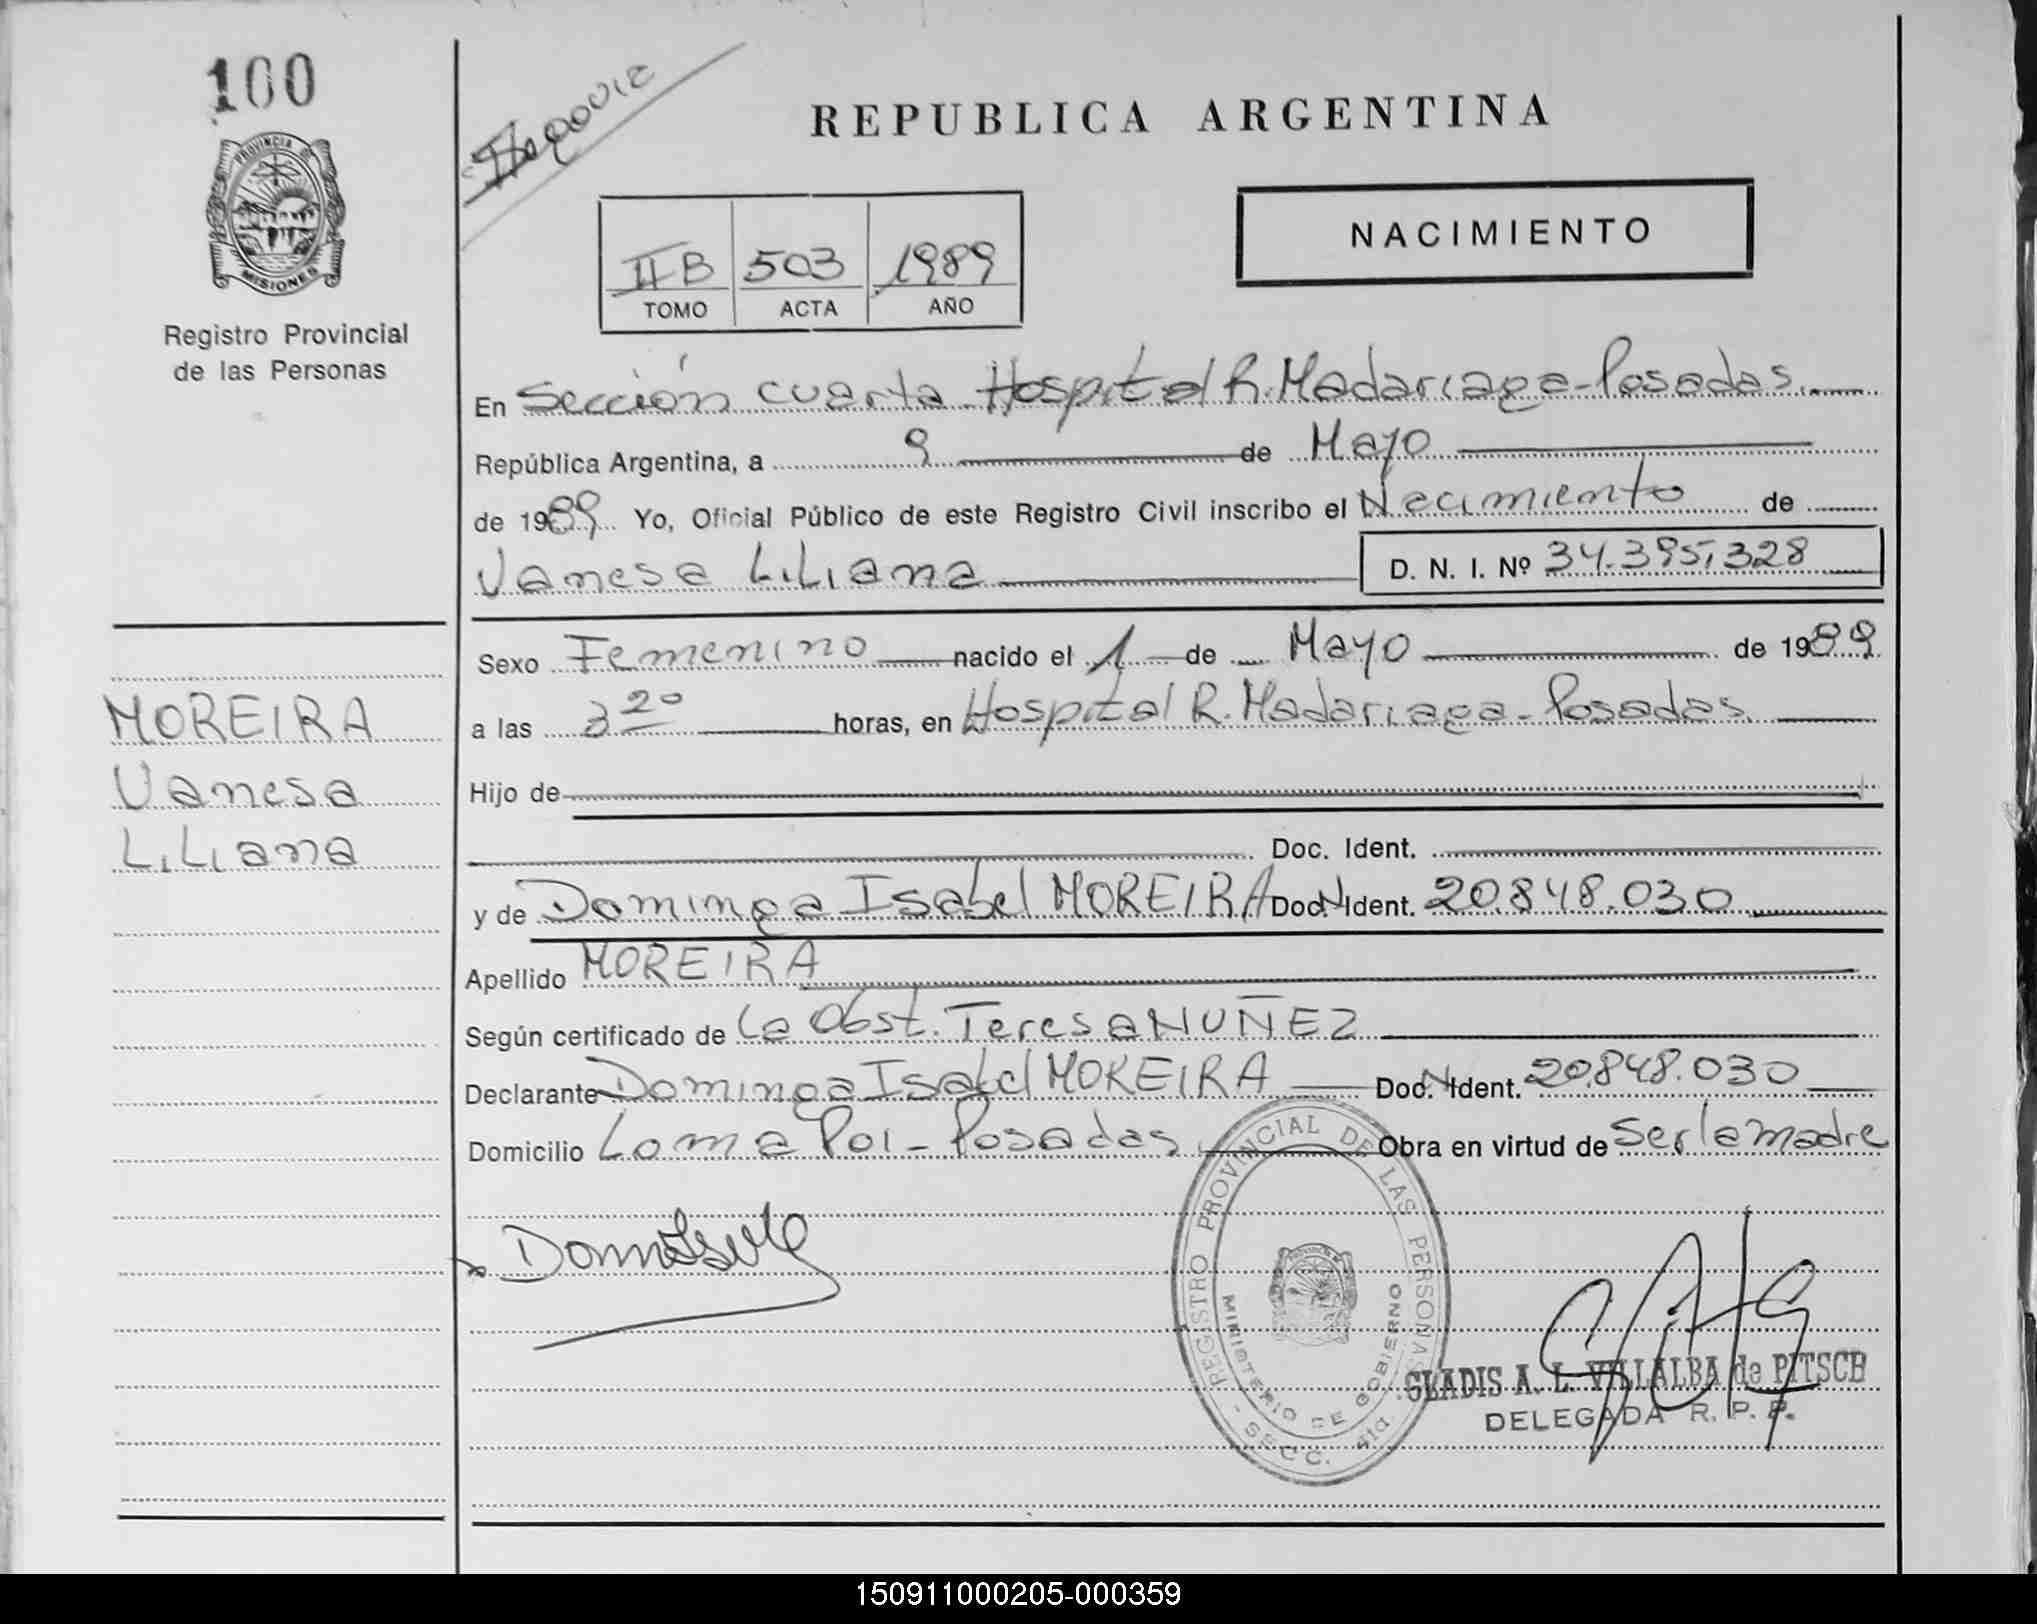 100
PROVINCIA DE
MISIONES
Registro Provincial
de las Personas
REPUBLICA ARGENTINA
NACIMIENTO
IIB 503 1989
TOMO ACTA AÑO
En Sección cuarta Hospital R. Madariaga-Posadas.
República Argentina, a 9 de Mayo
de 1989 Yo, Oficial Público de este Registro Civil inscribo el Nacimiento de
Vanesa Liliana D. N. I. Nº 34.395,328
Sexo Femenino nacido el 1 de Mayo de 1989
a las 3 20 horas, en Hospital R. Madariaga-Posadas
Hijo de
Doc. Ident.
y de Dominga Isabel MOREIRA Doc. N Ident. 20.848.030
Apellido MOREIRA
Según certificado de La Obst. Teresa NUÑEZ
Declarante Dominga Isabel MOREIRA Doc. N Ident. 20.848.030
Domicilio Loma Poi - Posadas. Obra en virtud de Ser la madre
MOREIRA
Vanesa
Liliana
REGISTRO PROVINCIAL DE LAS PERSONAS
MINISTERIO DE GOBIERNO
- SECC. 4ta.
GLADIS A. L. VILLALBA de PITSCH
DELEGADA R. P. P.
150911000205-000359